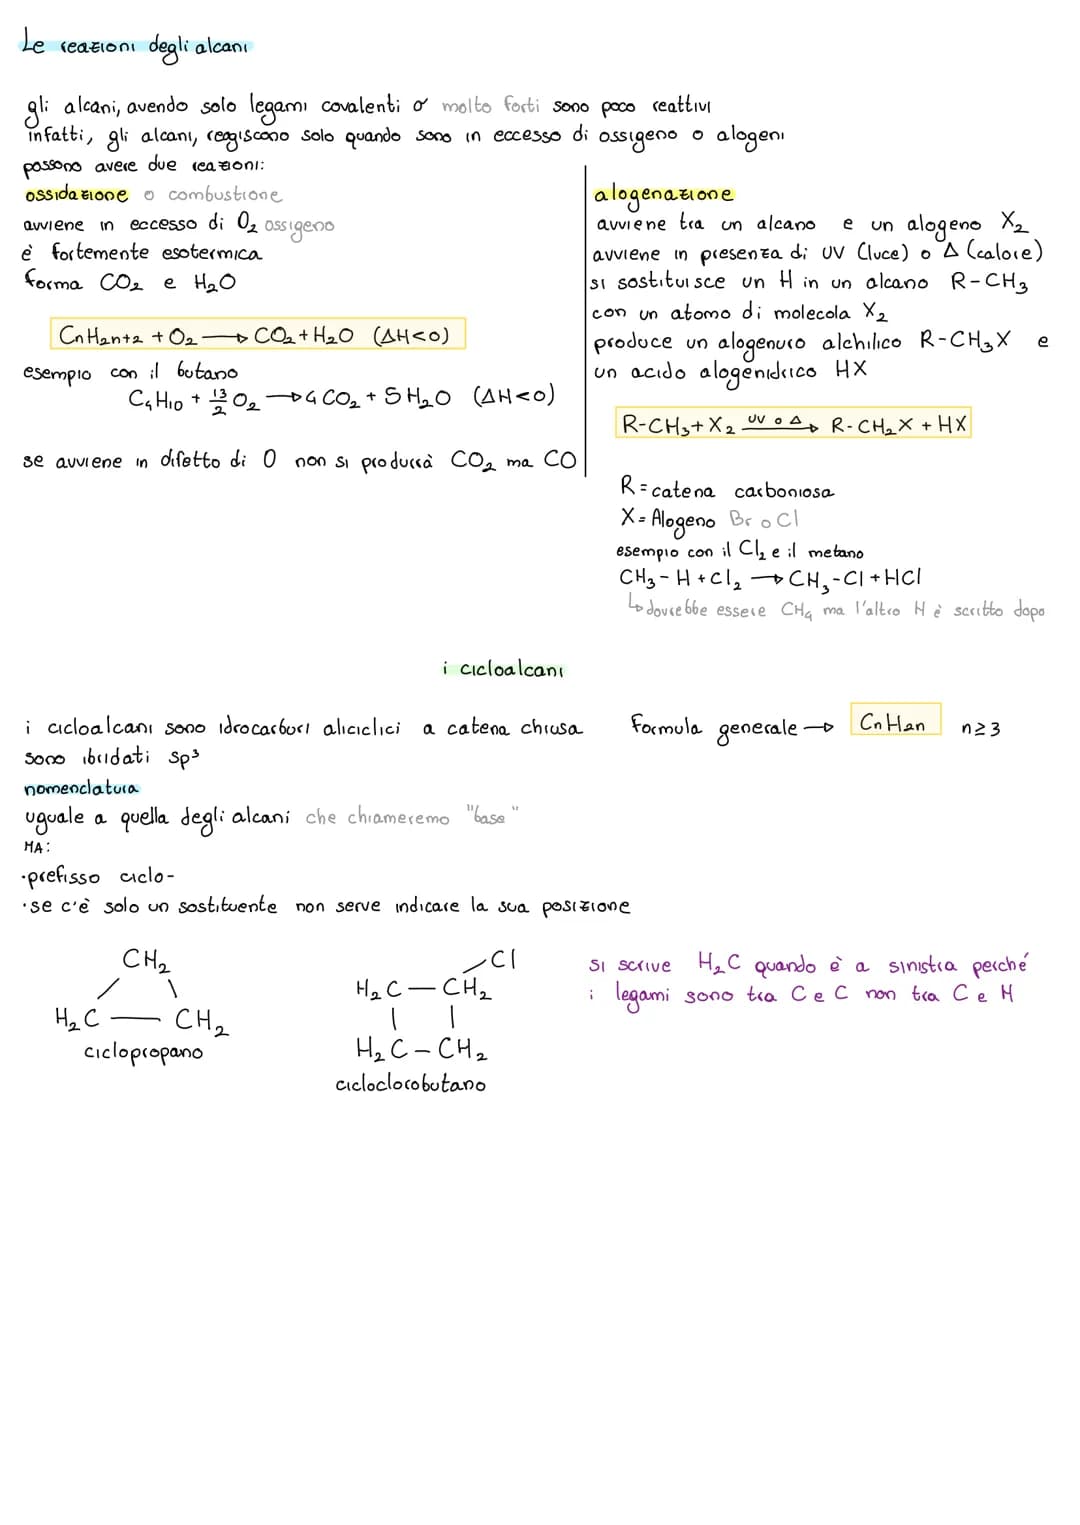 Le reazioni degli alcani
gli alcani, avendo solo legami covalenti σ molto forti sono poco reattivi
infatti, gli alcani, reagiscono solo quando sono in eccesso di ossigeno o alogeni
possono avere due reazioni:
ossidazione o combustione
avviene in eccesso di O₂ ossigeno
è fortemente esotermica
forma CO₂ e H₂O
CnH2n+2 + O₂ → CO₂ + H₂O (ΔH<0)
esempio con il butano
C₄H₁₀ + 13/2 O₂ → 4 CO₂ + 5 H₂O (ΔH<0)
se avviene in difetto di O non si produrrà CO₂ ma CO
alogenazione
avviene tra un alcano e un alogeno X₂
avviene in presenza di UV (luce) o Δ (calore)
si sostituisce un H in un alcano R-CH₃
con un atomo di molecola X₂
produce un alogenuro alchilico R-CH₃X e
un acido alogenidrico HX
R-CH₃ + X₂ UV o Δ → R-CH₂X + HX
R = catena carboniosa
X = Alogeno Br o Cl
esempio con il Cl₂ e il metano
CH₃-H + Cl₂ → CH₃-Cl + HCl
↳ dovrebbe essere CH₄ ma l'altro H è scritto dopo
i cicloalcani
i cicloalcani sono idrocarburi aliciclici a catena chiusa formula generale → CnH2n n≥3
sono ibridati sp³
nomenclatura
uguale a quella degli alcani che chiameremo "base"
MA:
·prefisso ciclo-
·se c'è solo un sostituente non serve indicare la sua posizione
CH₂
H₂C — CH₂
ciclopropano
Cl
H₂C — CH₂
H₂C — CH₂
cicloclorobutano
si scrive H₂C quando è a sinistra perché
i legami sono tra C e C non tra C e H